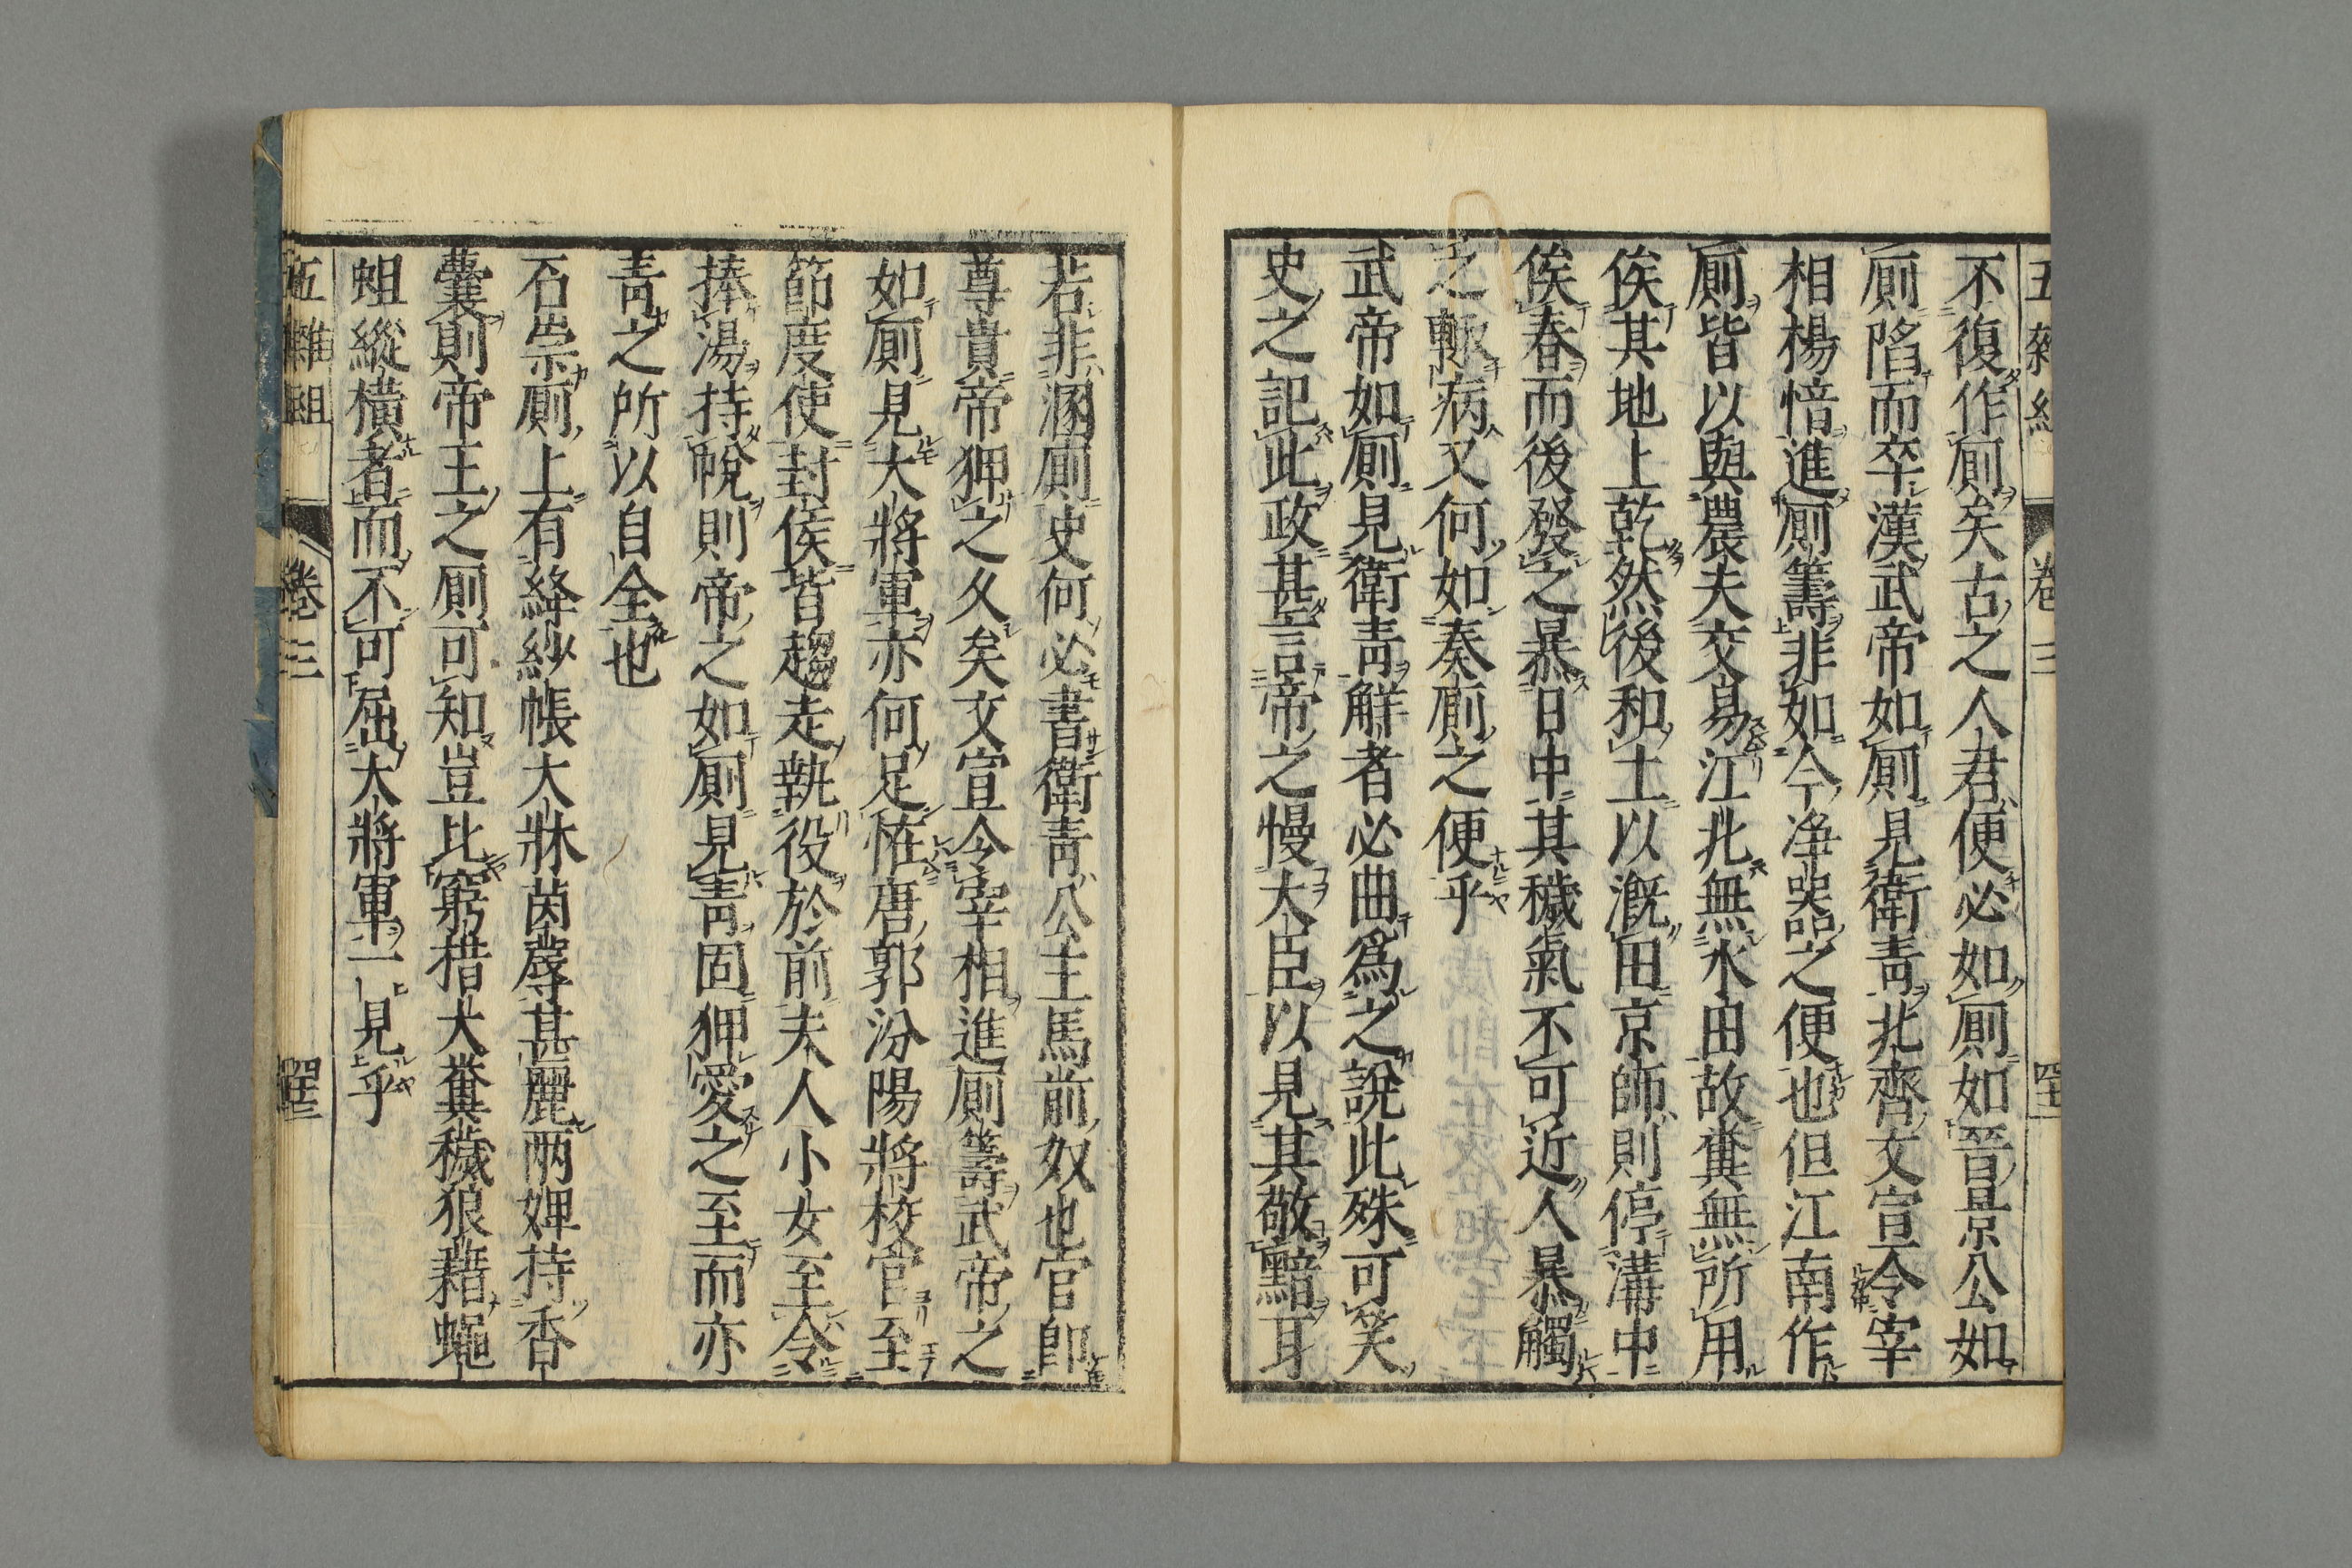 五雜組 卷三 四十一
不復作厠矣古之人君便必如厠如晉景公如
厠陷而卒漢武帝如厠見衛靑北齊文宣令宰
相楊愔進厠籌非如今淨器之便也但江南作
厠皆以與農夫交易江北無水田故糞無所用
俟其地上乾然後和土以漑田京師則停溝中
俟春而後發之暴日中其穢氣不可近人暴觸
之輒病又何如奏厠之便乎
武帝如厠見衛靑解者必曲爲之說此殊可笑
史之記此政甚言帝之慢大臣以見其敬黯耳
若非溷厠史何必書衛靑公主馬前奴也官卽
尊貴帝狎之久矣文宣令宰相進厠籌武帝之
如厠見大將軍亦何足恠唐郭汾陽將校官至
節度使封侯皆趨走執役於前夫人小女至令
捧湯持帨則帝之如厠見靑固狎愛之至而亦
靑之所以自全也
石崇厠上有絳紗帳大牀茵蓐甚麗兩婢持香
囊則帝王之厠可知豈比窮措大糞穢狼藉蠅
蛆縱橫者而不可屈大將軍一見乎
五雜組 卷三